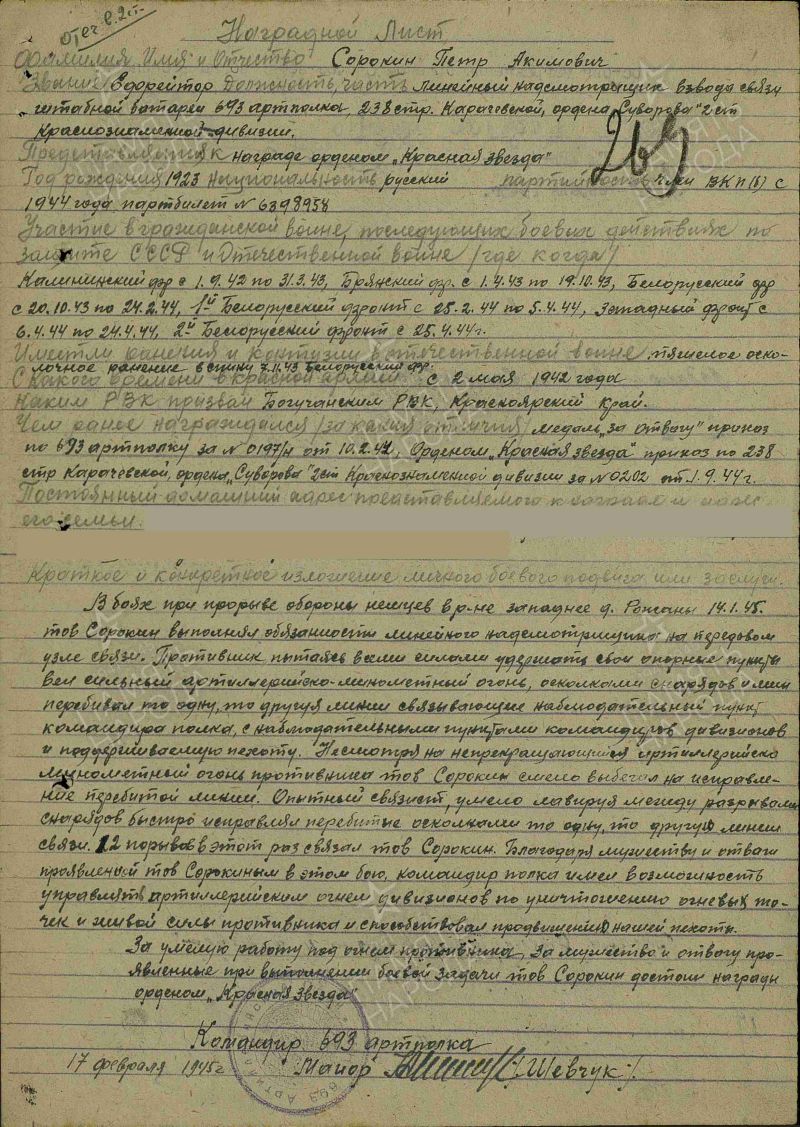 Отеч. в. 2 ст.
Наградной Лист
Фамилия Имя и Отчество Сорокин Петр Акимович
Звание Ефрейтор Должность, часть линейный надсмотрщик взвода связи
штабной батареи 693 артполка, 238 стр. Карачевской, ордена „Суворова" 2 ст
Краснознаменной дивизии.
269
Представляется к награде орденом „Красная звезда"
Год рождения 1923 национальность русский партийность член ВКП(б) с
1944 года партбилет № 6398958
Участие в гражданской войне, последующих боевых действиях по
защите СССР и Отечественной войне /где, когда/
Калининский фр с 1.9.42 по 31.3.43, Брянский фр. с 1.4.43 по 19.10.43, Белорусский фр
с 20.10.43 по 24.2.44, 1й Белорусский фронт с 25.2.44 по 5.4.44, Западный фронт с
6.4.44 по 24.4.44, 2й Белорусский фронт с 25.4.44 г.
Имеет ли ранения и контузии в отечественной войне, тяжелое оско-
лочное ранение в спину 7.11.43 Белорусский фр.
С какого времени в красной армии с 2 мая 1942 года
Каким РВК призван Богучанским РВК, Красноярский край.
Чем ранее награждался /за какия отличия/ медаль „за отвагу" приказ
по 693 артполку за № 0197/н от 10.2.44, Орденом „Красная звезда" приказ по 238
стр Карачевской, ордена „Суворова" 2 ст Краснознаменной дивизии за № 0202 от 1.9.44 г.
Постоянный домашний адрес представляемого к награде и адрес
его семьи.
Краткое и конкретное изложение личного боевого подвига или заслуги.
В боях при прорыве обороны немцев в р-не западнее д. Рожаны 14.1.45.
тов Сорокин выполнял обязанности линейного надсмотрщика на передовом
узле связи. Противник пытаясь всеми силами удержать свои опорные пункты
вел сильный артиллерийско-минометный огонь, осколками снарядов и мин
перебивал то одну, то другуя линии связывающие наблюдательный пункт
командира полка, с наблюдательными пунктами командиров дивизионов
и поддерживаемую пехоту. Несмотря на непрекращающийся артиллерийско
минометный огонь противника тов Сорокин смело выбегал на исправле-
ние перебитой линии. Опытный связист, умело лавируя между разрывами
снарядов быстро исправлял перебитые осколками то одну, то другую линии
связи. 12 порывов в этот раз связал тов Сорокин. Благодаря мужеству и отваги
проявленый тов Сорокиным в этом бою, командир полка имел возможность
управлять артиллерийским огнем дивизионов по уничтожению огневых то-
чек и живой силы противника и способствовал продвижению нашей пехоты.
За умелую работу под огнем противника, за мужество и отвагу про-
явленные при выполнении боевой задачи тов Сорокин достоин награды
орденом „Красная Звезда"
Командир 693 артполка
17 февраля 1945 г Майор /Шевчук/.